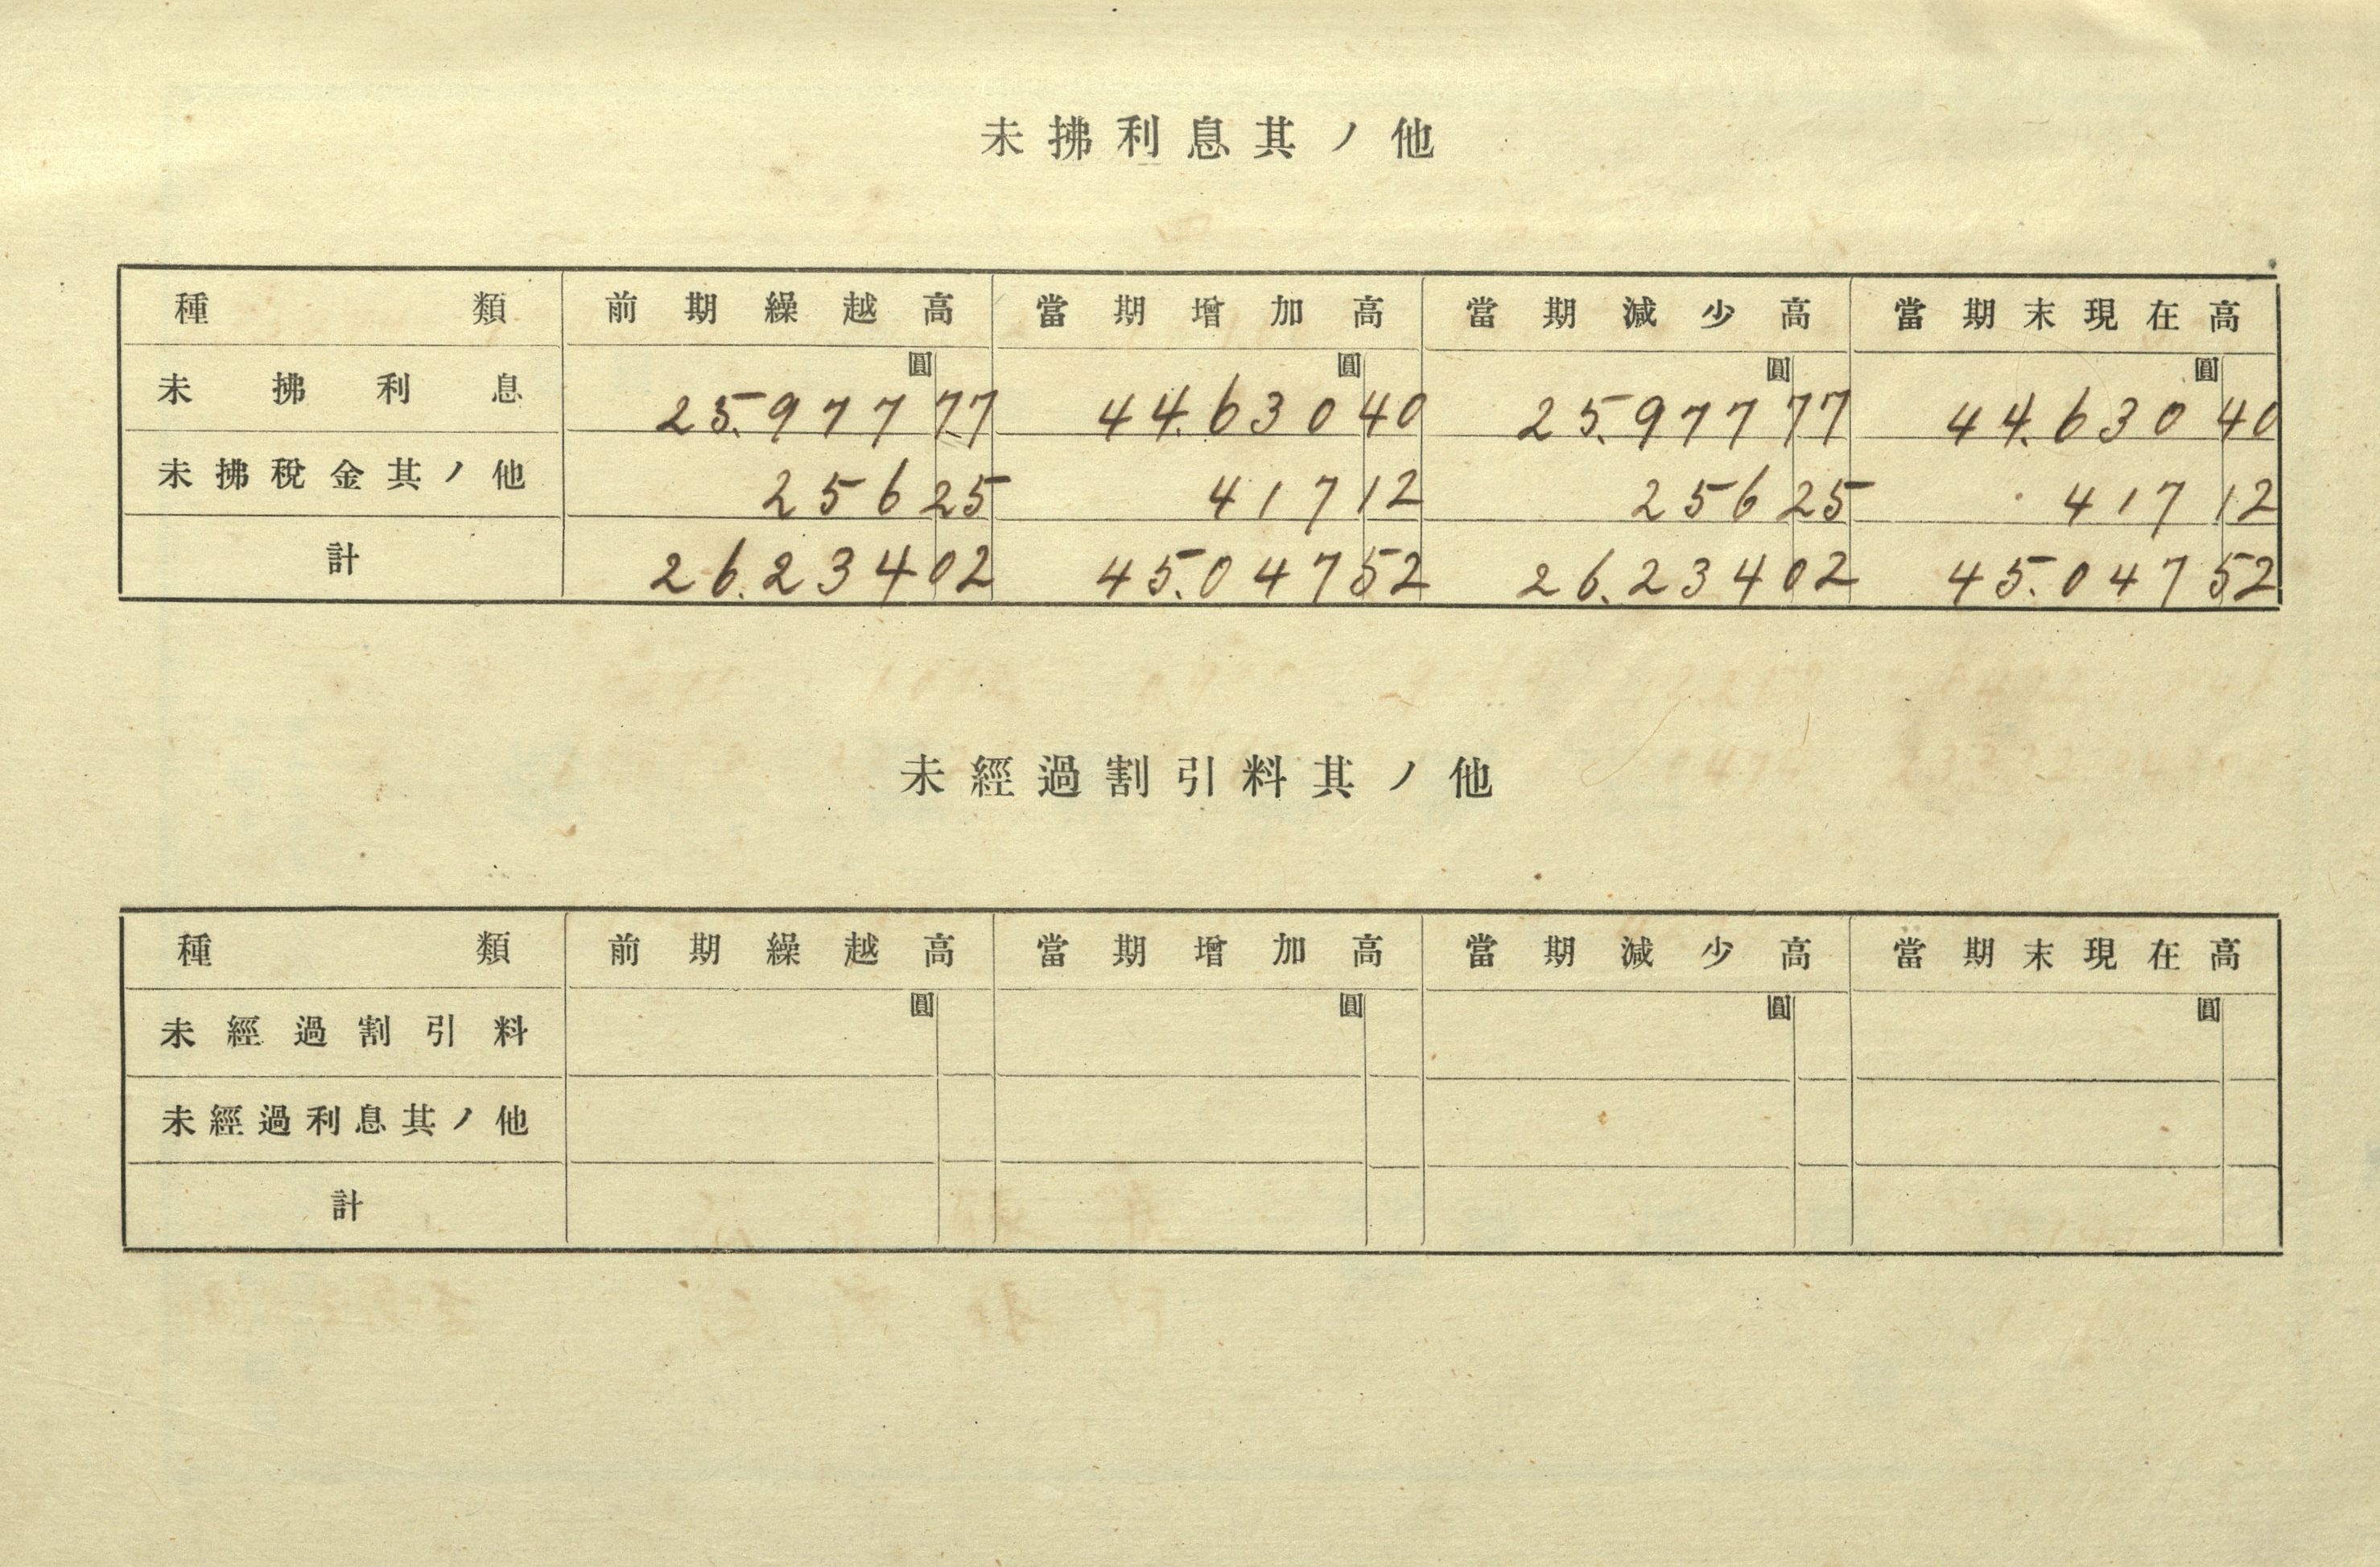 未拂利息其ノ他
種類 前期繰越高 當期增加高 當期減少高 當期末現在高
圓 圓 圓 圓
未拂利息 25.977 77 44.630 40 25.977 77 44.630 40
未拂稅金其ノ他 256 25 417 12 256 25 417 12
計 26.234 02 45.047 52 26.234 02 45.047 52
未經過割引料其ノ他
種類 前期繰越高 當期增加高 當期減少高 當期末現在高
圓 圓 圓 圓
未經過割引料
未經過利息其ノ他
計